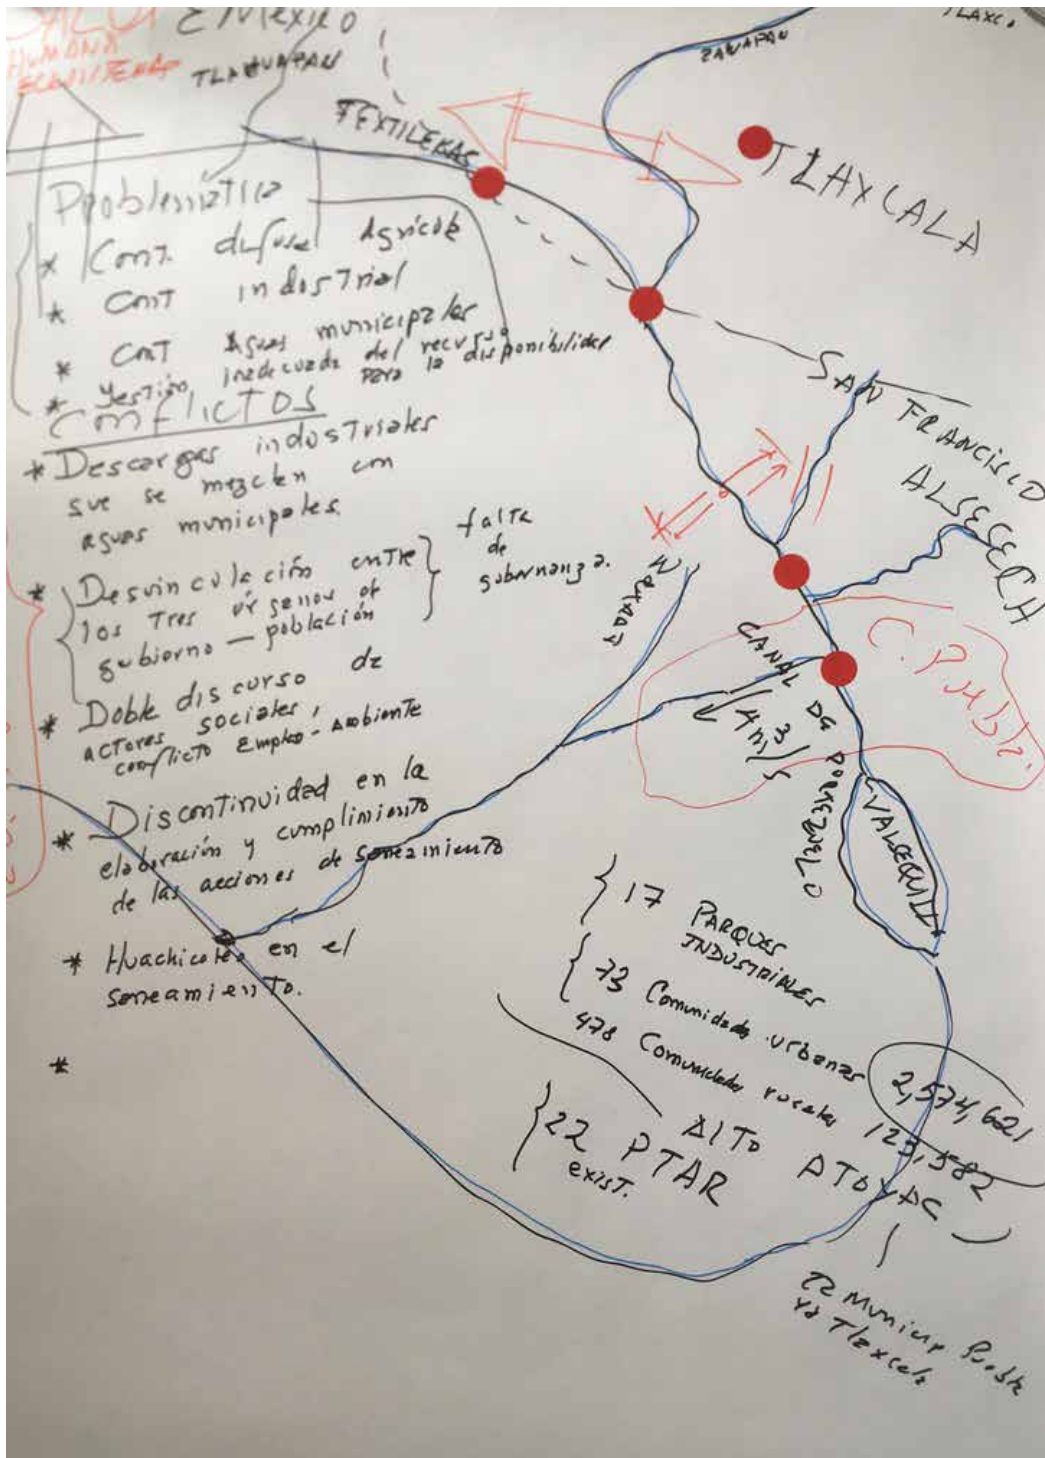 SALUD
HUMANA
ECOSISTEMAS
E México
TLAHUAPAN
TEXTILERAS
ZAHUAPAN
TLAXC.
TLAXCALA
Problemática
* Cont. difusa Agrícola
* Cont industrial
* Cont Aguas municipales
* Gestión inadecuada del recurso
para la disponibilidad
CONFLICTOS
* Descargas industriales
que se mezclan con
aguas municipales.
* Desvinculación entre
los tres órganos de
gobierno — población
falta
de
gobernanza.
* Doble discurso de
actores sociales,
conflicto Empleo - Ambiente
* Discontinuidad en la
elaboración y cumplimiento
de las acciones de saneamiento
* Huachicoleo en el
saneamiento.
*
SAN FRANCISCO
ALSESECA
C. Puebla.
CANAL DE
4 m3/s
VALSEQUILLO
17 PARQUES
INDUSTRIALES
73 Comunidades urbanas 2,574,621
478 Comunidades rurales 123,582
ALTO ATOYAC
22 PTAR
exist.
22 Municip Puebla
y Tlaxcala